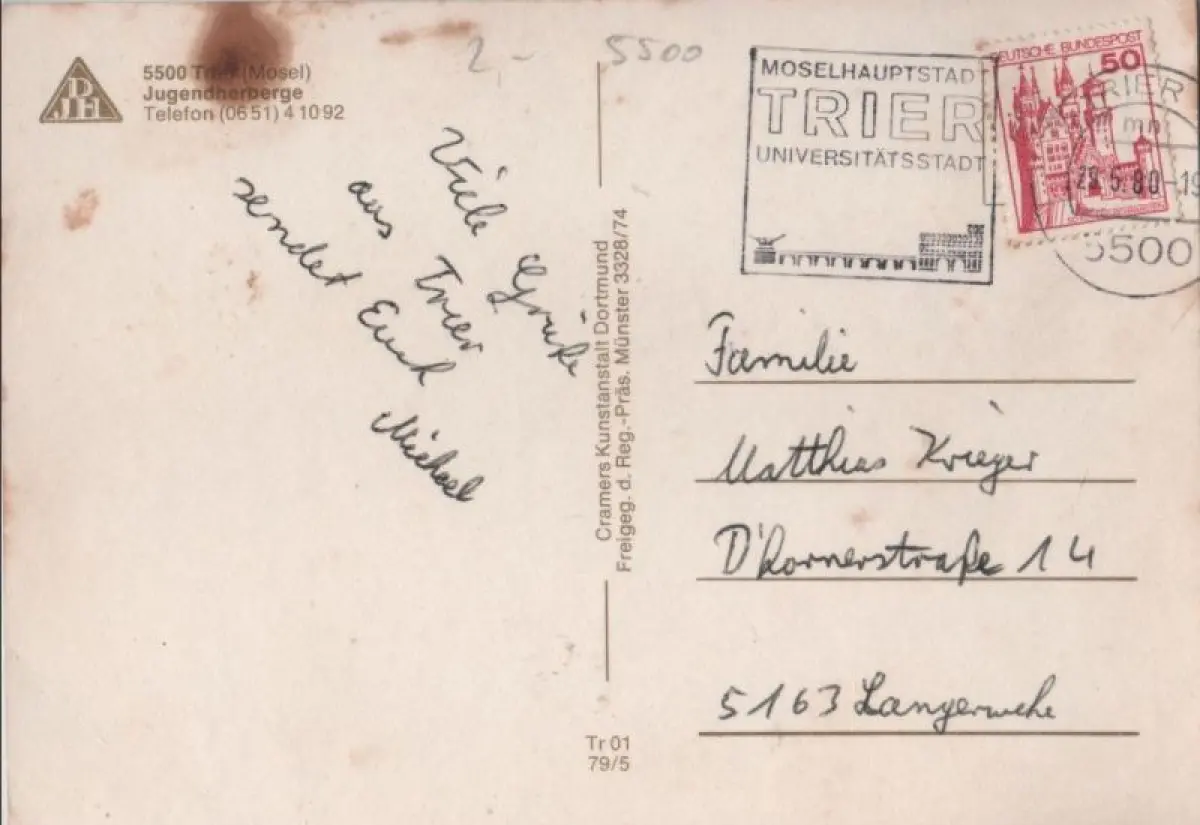 DJH
5500 Trier (Mosel)
Jugendherberge
Telefon (06 51) 4 10 92
2,-
5500
Viele Grüße
aus Trier
sendet Euch
Michael
Cramers Kunstanstalt Dortmund
Freigeg. d. Reg.-Präs. Münster 3328/74
Tr 01
79/5
MOSELHAUPTSTADT
TRIER
UNIVERSITÄTSSTADT
DEUTSCHE BUNDESPOST
50
TRIER
mn
5.80-19
5500
Familie
Matthias Krieger
D'hornerstraße 14
5163 Langerwehe